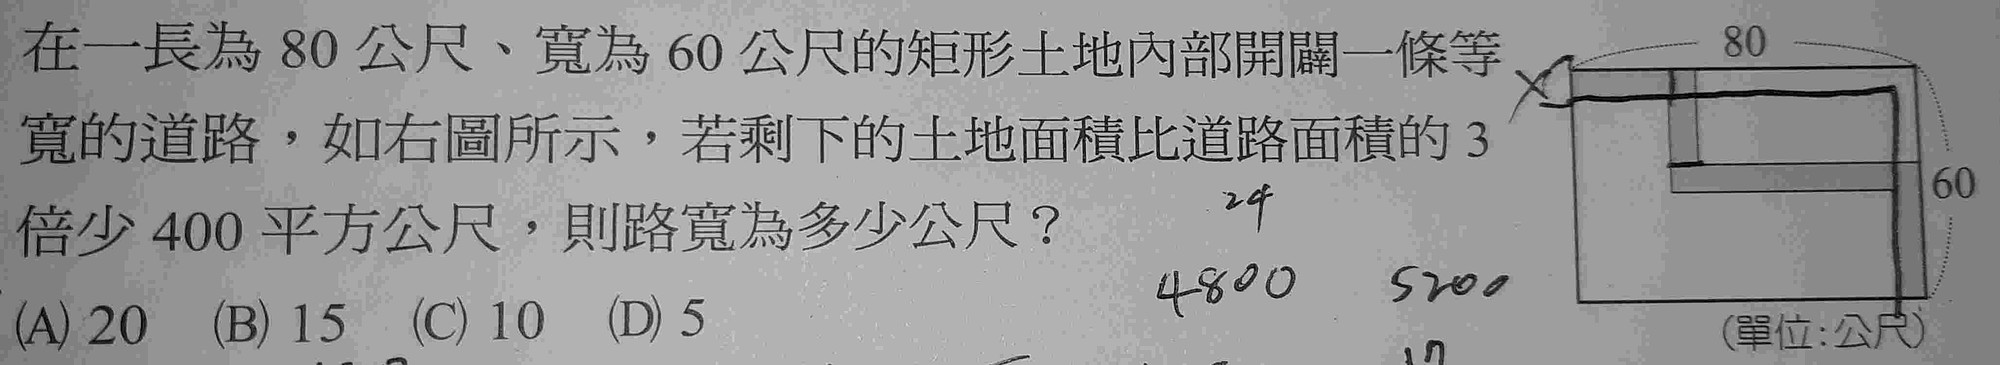 在一長為 80 公尺、寬為 60 公尺的矩形土地內部開闢一條等
寬的道路，如右圖所示，若剩下的土地面積比道路面積的 3
倍少 400 平方公尺，則路寬為多少公尺？
(A) 20 (B) 15 (C) 10 (D) 5
24
4800 5200
80
X
60
(單位:公尺)